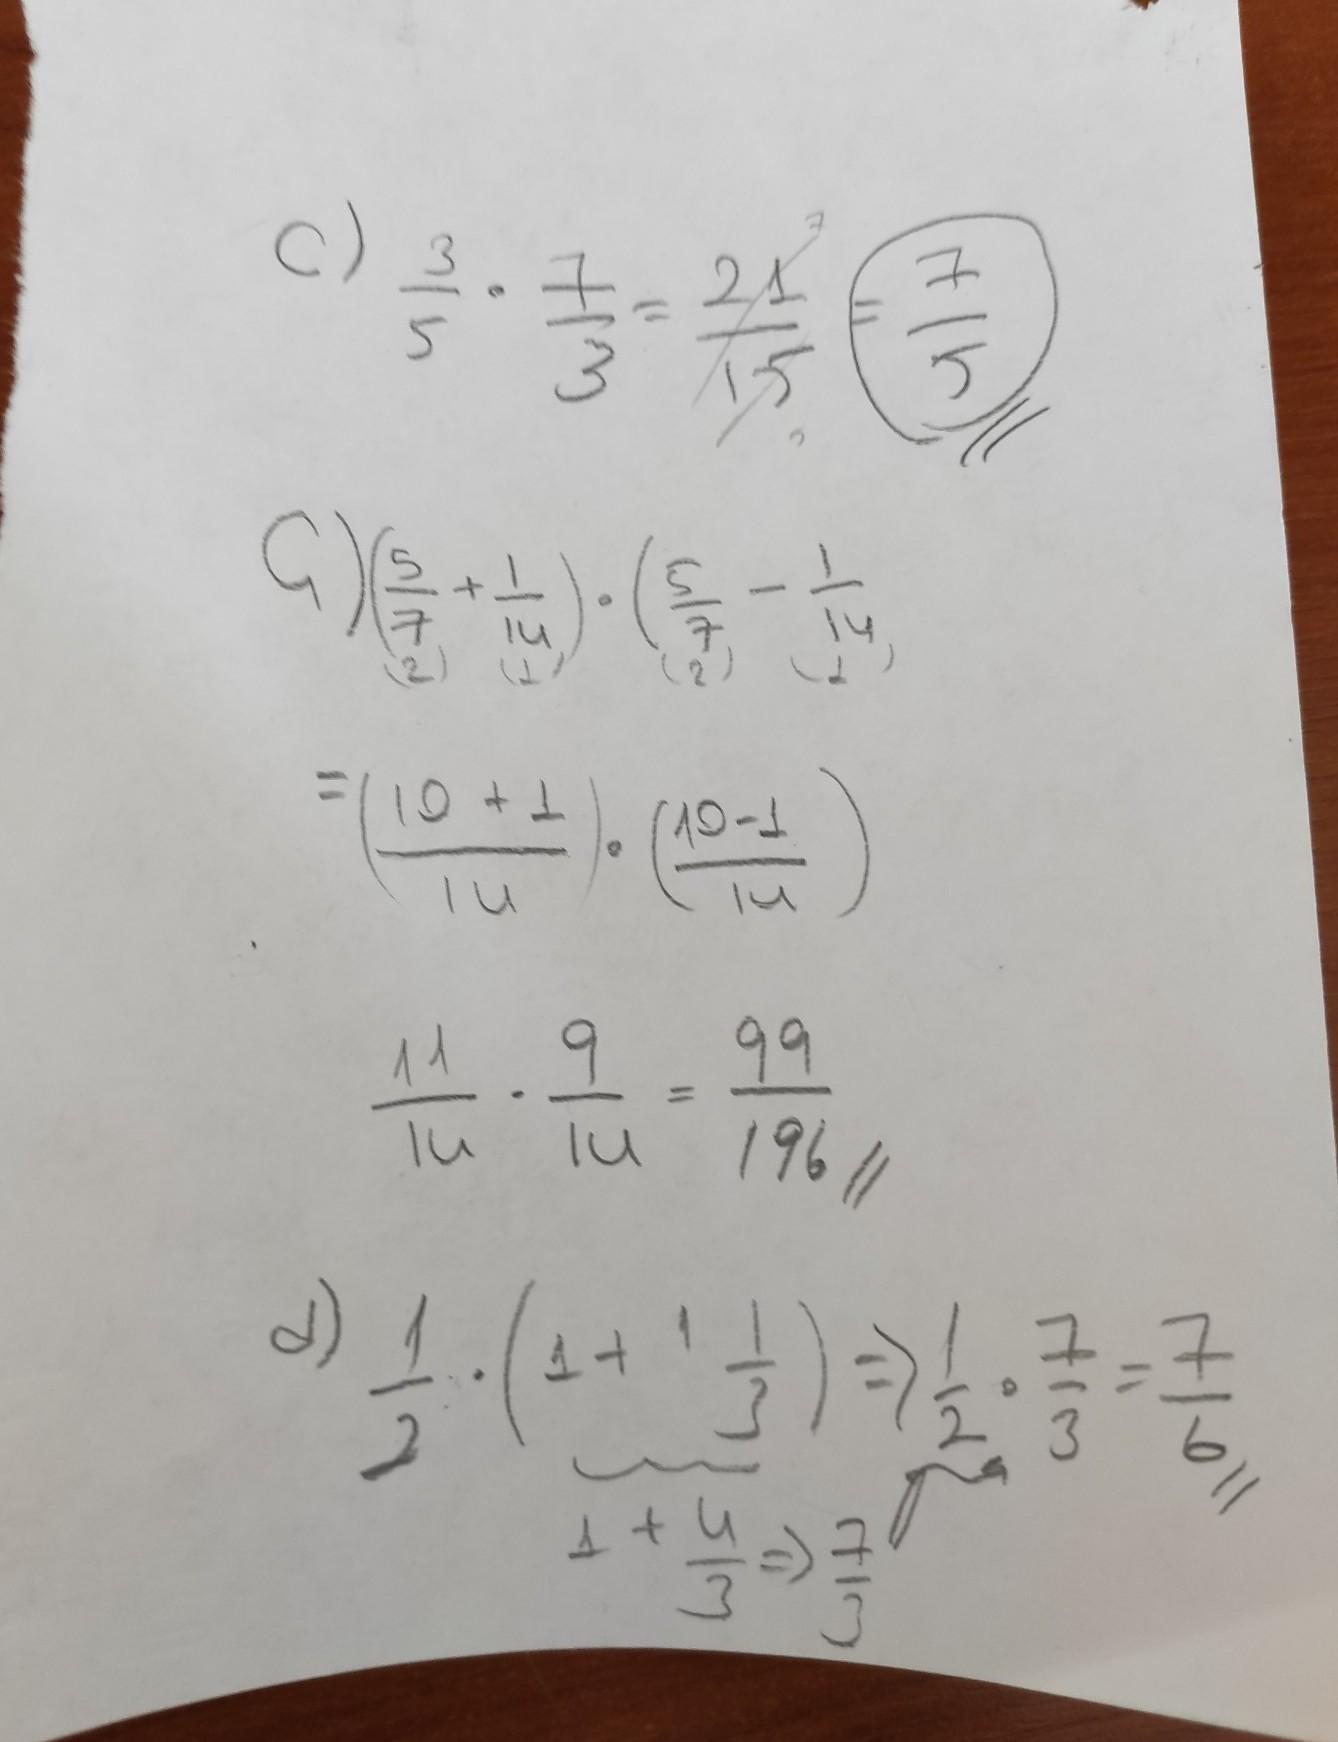 c) 3/5 · 7/3 = 21/15 = 7/5
Ç) (5/7 + 1/14) · (5/7 - 1/14
(2) (1) (2) (1)
= (10 + 1/14) · (10-1/14)
11/14 · 9/14 = 99/196 //
d) 1/2 · (1 + 1 1/3) => 1/2 · 7/3 = 7/6 //
1 + 4/3 => 7/3